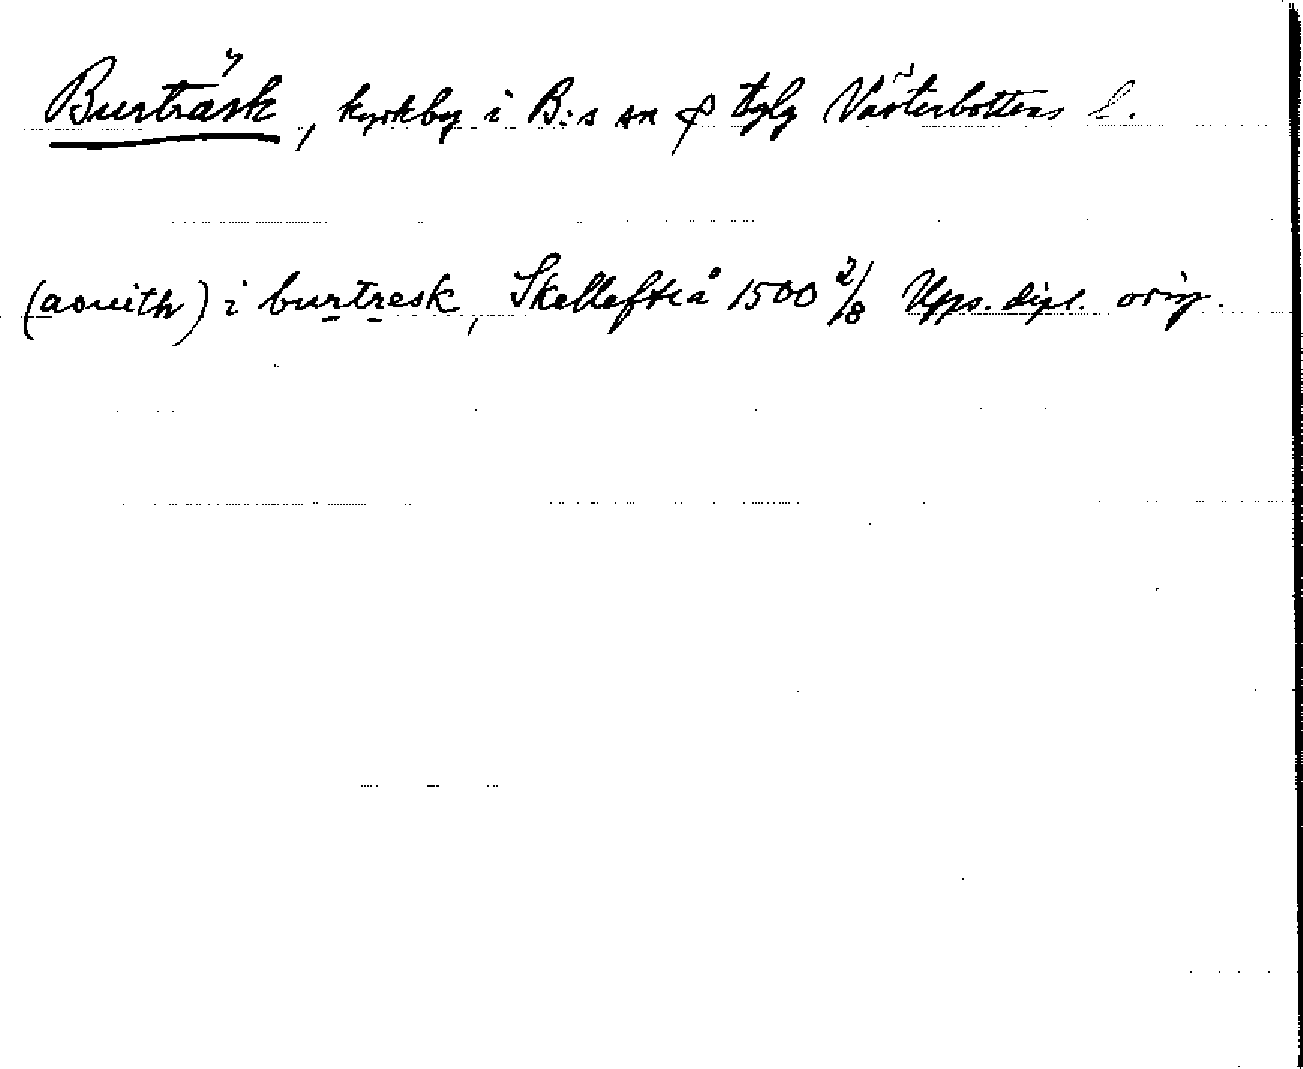 Burträsk, kyrkby i B:s sn & tglg Västerbottens l.
(aouith) i burtresk, Skellefteå 1500 2/8 Upps. dipl. orig.